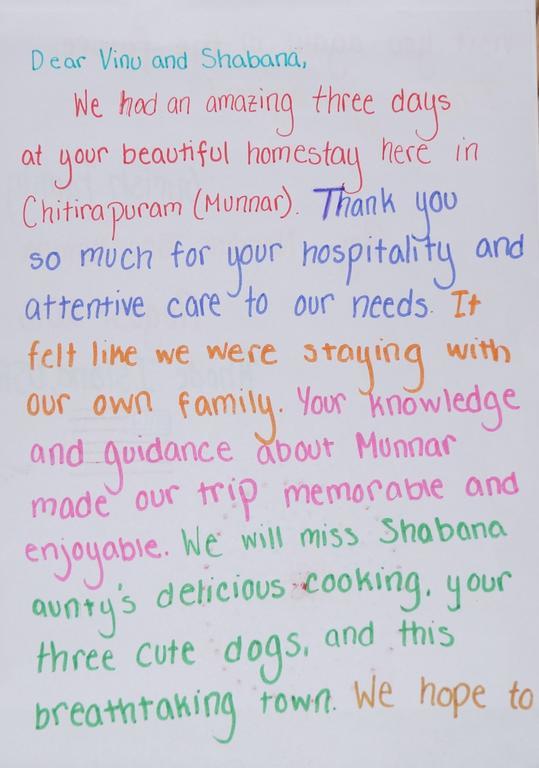 Dear Vinu and Shabana,
We had an amazing three days
at your beautiful homestay here in
Chitirapuram (Munnar). Thank you
so much for your hospitality and
attentive care to our needs. It
felt like we were staying with
our own family. Your knowledge
and guidance about Munnar
made our trip memorable and
enjoyable. We will miss Shabana
aunty's delicious cooking, your
three cute dogs, and this
breathtaking town. We hope to